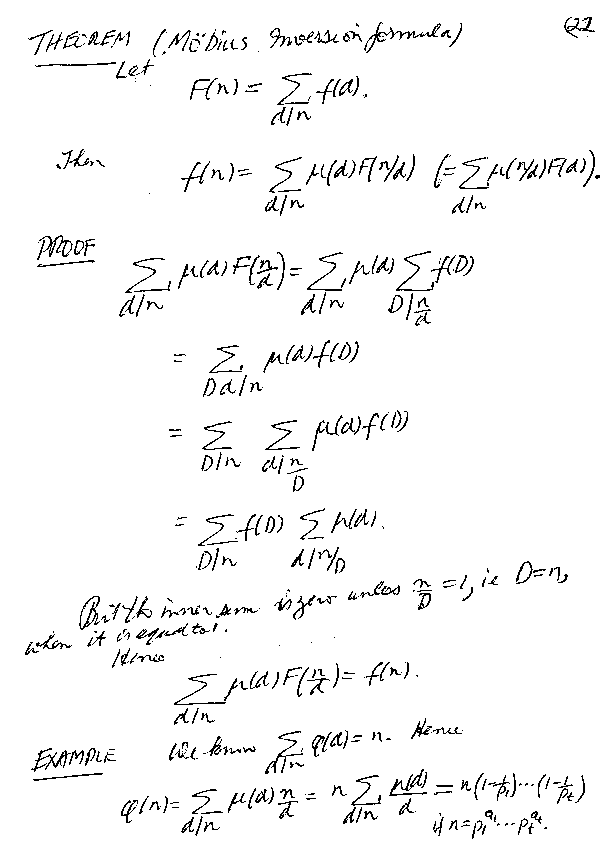 THEOREM (Möbius Inversion formula) (22
Let
F(n) = ∑_{d|n} f(d).
Then f(n) = ∑_{d|n} μ(d)F(n/d) (= ∑_{d|n} μ(n/d)F(d)).
PROOF
∑_{d|n} μ(d)F(n/d) = ∑_{d|n} μ(d) ∑_{D|n/d} f(D)
= ∑_{Dd|n} μ(d)f(D)
= ∑_{D|n} ∑_{d|n/D} μ(d)f(D)
= ∑_{D|n} f(D) ∑_{d|n/D} μ(d).
But the inner sum is zero unless n/D = 1, ie D=n,
when it is equal to 1.
Hence
∑_{d|n} μ(d)F(n/d) = f(n).
EXAMPLE We know ∑_{d|n} φ(d) = n. Hence
φ(n) = ∑_{d|n} μ(d) n/d = n ∑_{d|n} μ(d)/d = n(1-1/p₁)···(1-1/p_t)
if n = p₁^{a₁}···p_t^{a_t}.